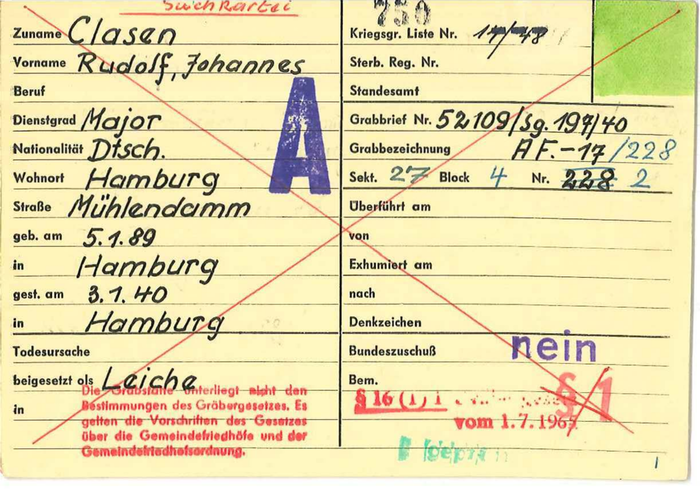 Suchkartei
750
Zuname Clasen
Vorname Rudolf, Johannes
Beruf
Dienstgrad Major
Nationalität Dtsch.
Wohnort Hamburg
Straße Mühlendamm
geb. am 5.1.89
in Hamburg
gest. am 3.1.40
in Hamburg
Todesursache
beigesetzt als Leiche
in
Die Grabstätte unterliegt nicht den
Bestimmungen des Gräbergesetzes. Es
gelten die Vorschriften des Gesetzes
über die Gemeindefriedhöfe und der
Gemeindefriedhofsordnung.
A
Kriegsgr. Liste Nr. 17/48
Sterb. Reg. Nr.
Standesamt
Grabbrief Nr. 52109/Sg. 197/40
Grabbezeichnung AF.-17/228
Sekt. 27 Block 4 Nr. 228 2
Überführt am
von
Exhumiert am
nach
Denkzeichen
Bundeszuschuß nein
Bem.
§ 16 (1) 1
vom 1.7.1965
§ 1
1